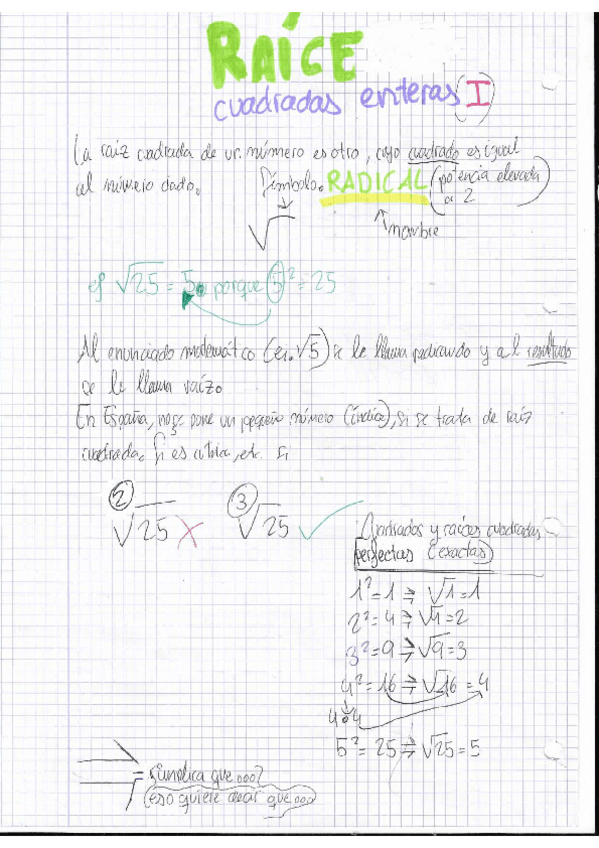 RAÍCE
cuadradas enteras (I)
La raíz cuadrada de un número es otro, cuyo cuadrado es igual
al número dado. Símbolo. RADICAL (potencia elevada
a 2
√ nombre
ej √25 = 5. porque 5² = 25
Al enunciado matemático (ej. √5) se le llama radicando y al resultado
se le llama raíz.
En España, no se pone un pequeño número (índice), si se trata de raíz
cuadrada. Si es cúbica, etc. si
②√25 ✗ ③√25 ✓
Cuadrados y raíces cuadradas
perfectas (exactas)
1² = 1 ⇒ √1 = 1
2² = 4 ⇒ √4 = 2
3² = 9 ⇒ √9 = 3
4² = 16 ⇒ √16 = 4
4·4
5² = 25 ⇒ √25 = 5
⇒ = ¿implica que...?
(eso quiere decir que...)